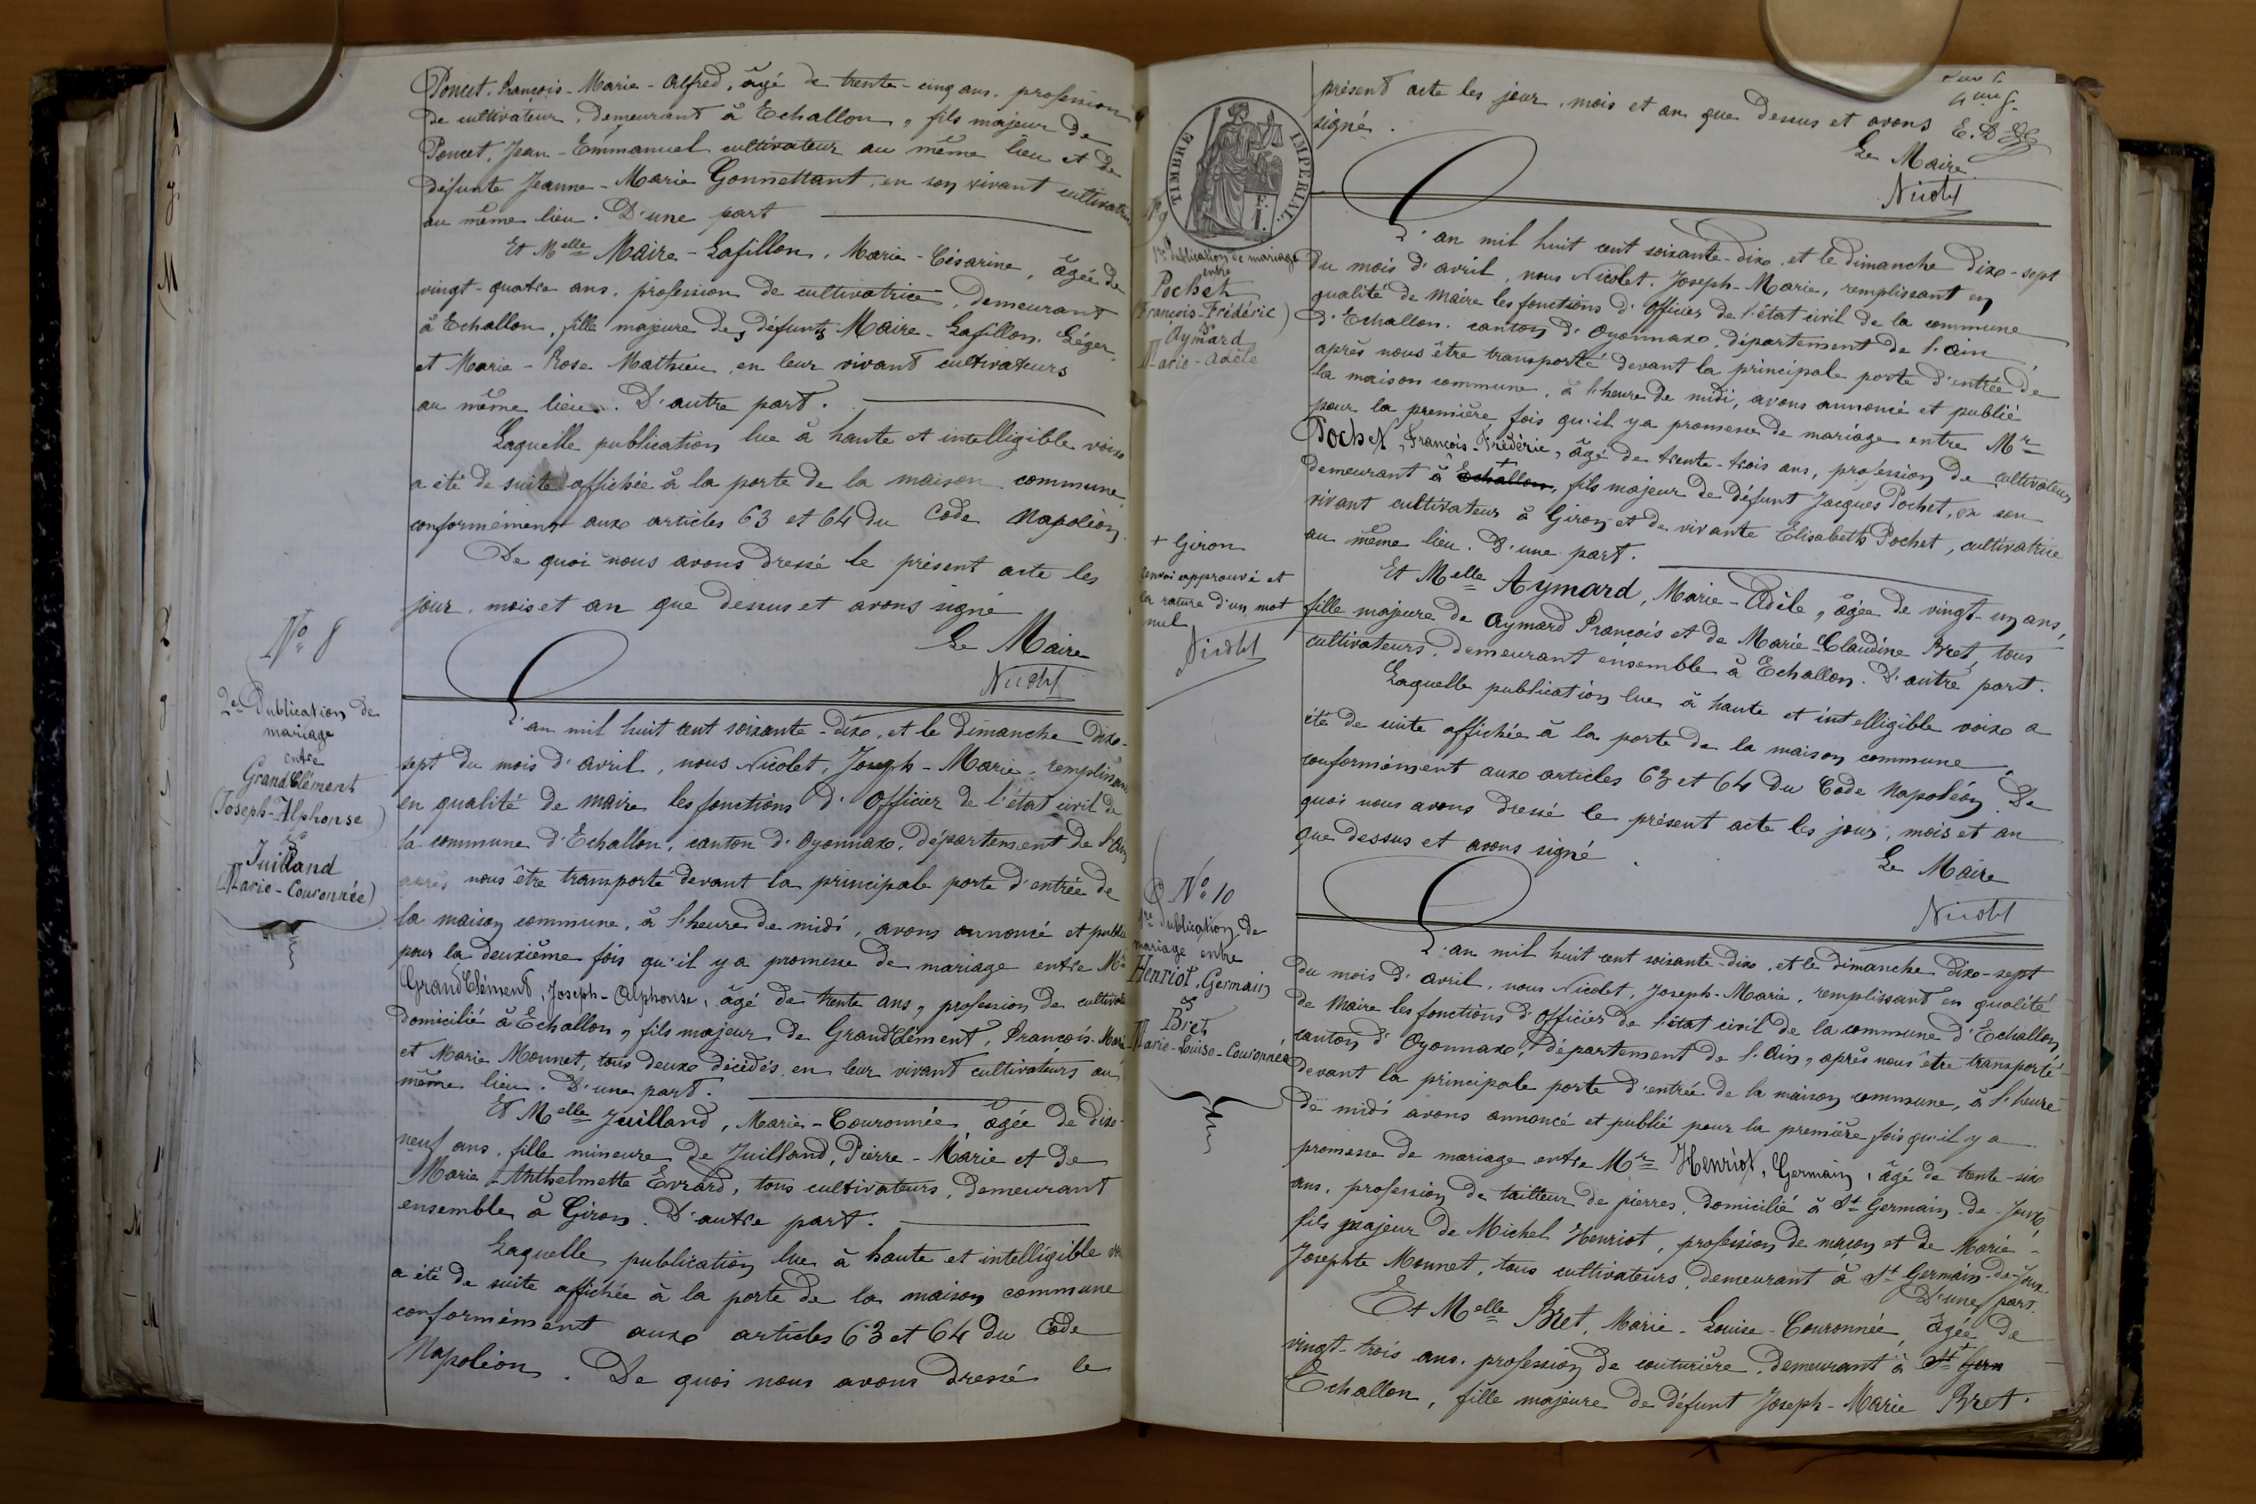 Poncet, François-Marie-Alfred, âgé de trente-cinq ans, profession
de cultivateur, demeurant à Echallon, fils majeur de
Poncet, Jean-Emmanuel cultivateur au même lieu et de
défunte Jeanne-Marie Gonnettant, en son vivant cultivatrice
au même lieu. D'une part
Et Melle Maire-Lafillon, Marie-Césarine, âgée de
vingt-quatre ans, profession de cultivatrice, demeurant
à Echallon, fille majeure des défunts Maire-Lafillon Léger,
et Marie-Rose Mathieu, en leur vivant cultivateurs
au même lieu. D'autre part.
Laquelle publication lue à haute et intelligible voix
a été de suite affichée à la porte de la maison commune
conformément aux articles 63 et 64 du Code Napoléon.
De quoi nous avons dressé le présent acte les
jour, mois et an que dessus et avons signé
Le Maire
Nicolet
No 8
2e Publication de
mariage
entre
GrandClément
(Joseph-Alphonse)
&
Juilland
(Marie-Couronnée)
L'an mil huit cent soixante-dix, et le dimanche dix-
sept du mois d'avril, nous Nicolet, Joseph-Marie, remplissant
en qualité de maire les fonctions d'Officier de l'état civil de
la commune d'Echallon, canton d'Oyonnax, département de l'Ain
après nous être transporté devant la principale porte d'entrée de
la maison commune, à l'heure de midi, avons annoncé et publié
pour la deuxième fois qu'il y a promesse de mariage entre Mr
GrandClément, Joseph-Alphonse, âgé de trente ans, profession de cultivateur
domicilié à Echallon, fils majeur de GrandClément, François-Marie
et Marie Monnet, tous deux décédés en leur vivant cultivateurs au
même lieu. D'une part.
Et Melle Juilland, Marie-Couronnée, âgée de dix-
neuf ans, fille mineure de Juilland, Pierre-Marie et de
Marie-Anthelmette Evrard, tous cultivateurs, demeurant
ensemble à Giron. D'autre part.
Laquelle publication lue à haute et intelligible
a été de suite affichée à la porte de la maison commune
conformément aux articles 63 et 64 du Code
Napoléon. De quoi nous avons dressé le
présent acte les jour, mois et an que dessus et avons
signé.
Le Maire
Nicolet
TIMBRE IMPERIAL
No 9
1re Publication de mariage
entre
Pochet
(François-Frédéric)
&
Aymard
Marie-Adèle
L'an mil huit cent soixante-dix, et le dimanche dix-sept
du mois d'avril, nous Nicolet, Joseph-Marie, remplissant en
qualité de maire les fonctions d'Officier de l'état civil de la commune
d'Echallon, canton d'Oyonnax, département de l'Ain
après nous être transporté devant la principale porte d'entrée de
la maison commune, à l'heure de midi, avons annoncé et publié
pour la première fois qu'il y a promesse de mariage entre Mr
Pochet, François-Frédéric, âgé de trente-trois ans, profession de cultivateur
demeurant à + Echallon, fils majeur de défunt Jacques Pochet, en son
vivant cultivateur à Giron et de vivante Elisabeth Pochet, cultivatrice
au même lieu. D'une part.
+ Giron
renvoi approuvé et
la rature d'un mot
nul
Nicolet
Et Melle Aymard, Marie-Adèle, âgée de vingt-un ans,
fille majeure de Aymard François et de Marie-Claudine Bret, tous
cultivateurs, demeurant ensemble à Echallon. D'autre part.
Laquelle publication lue à haute et intelligible voix a
été de suite affichée à la porte de la maison commune
conformément aux articles 63 et 64 du Code Napoléon. De
quoi nous avons dressé le présent acte les jour, mois et an
que dessus et avons signé.
Le Maire
Nicolet
No 10
1re Publication de
mariage entre
Henriot, Germain
&
Bret
Marie-Louise-Couronnée
L'an mil huit cent soixante-dix, et le dimanche dix-sept
du mois d'avril, nous Nicolet, Joseph-Marie, remplissant en qualité
de maire les fonctions d'Officier de l'état civil de la commune d'Echallon,
canton d'Oyonnax, département de l'Ain, après nous être transporté
devant la principale porte d'entrée de la maison commune, à l'heure
de midi avons annoncé et publié pour la première fois qu'il y a
promesse de mariage entre Mr Henriot, Germain, âgé de trente-six
ans, profession de tailleur de pierres, domicilié à St Germain-de-Joux,
fils majeur de Michel Henriot, profession de maçon et de Marie-
Josephte Monnet, tous cultivateurs, demeurant à St Germain-de-Joux
D'une part.
Et Melle Bret, Marie-Louise-Couronnée, âgée de
vingt-trois ans, profession de couturière, demeurant à St Germ
Echallon, fille majeure de défunt Joseph-Marie Bret